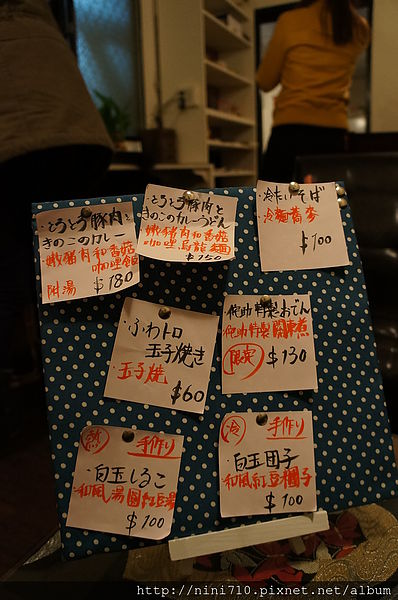 とろとろ豚肉と
きのこのカレー
嫩豬肉和香菇
咖哩飯
附湯 $180
とろとろ豚肉と
きのこのカレーうどん
嫩豬肉和香菇
咖哩烏龍麵
$150
・冷たいそば
冷麵蕎麥
$100
・ふわトロ
玉子焼き
・玉子燒
$60
・侽助特製おでん
特製關東煮
限定 $130
熱 手作り
・白玉しるこ
・和風湯圓紅豆湯
$100
冷 手作り
・白玉団子
和風紅豆糰子
$100
http://nini710.pixnet.net/album